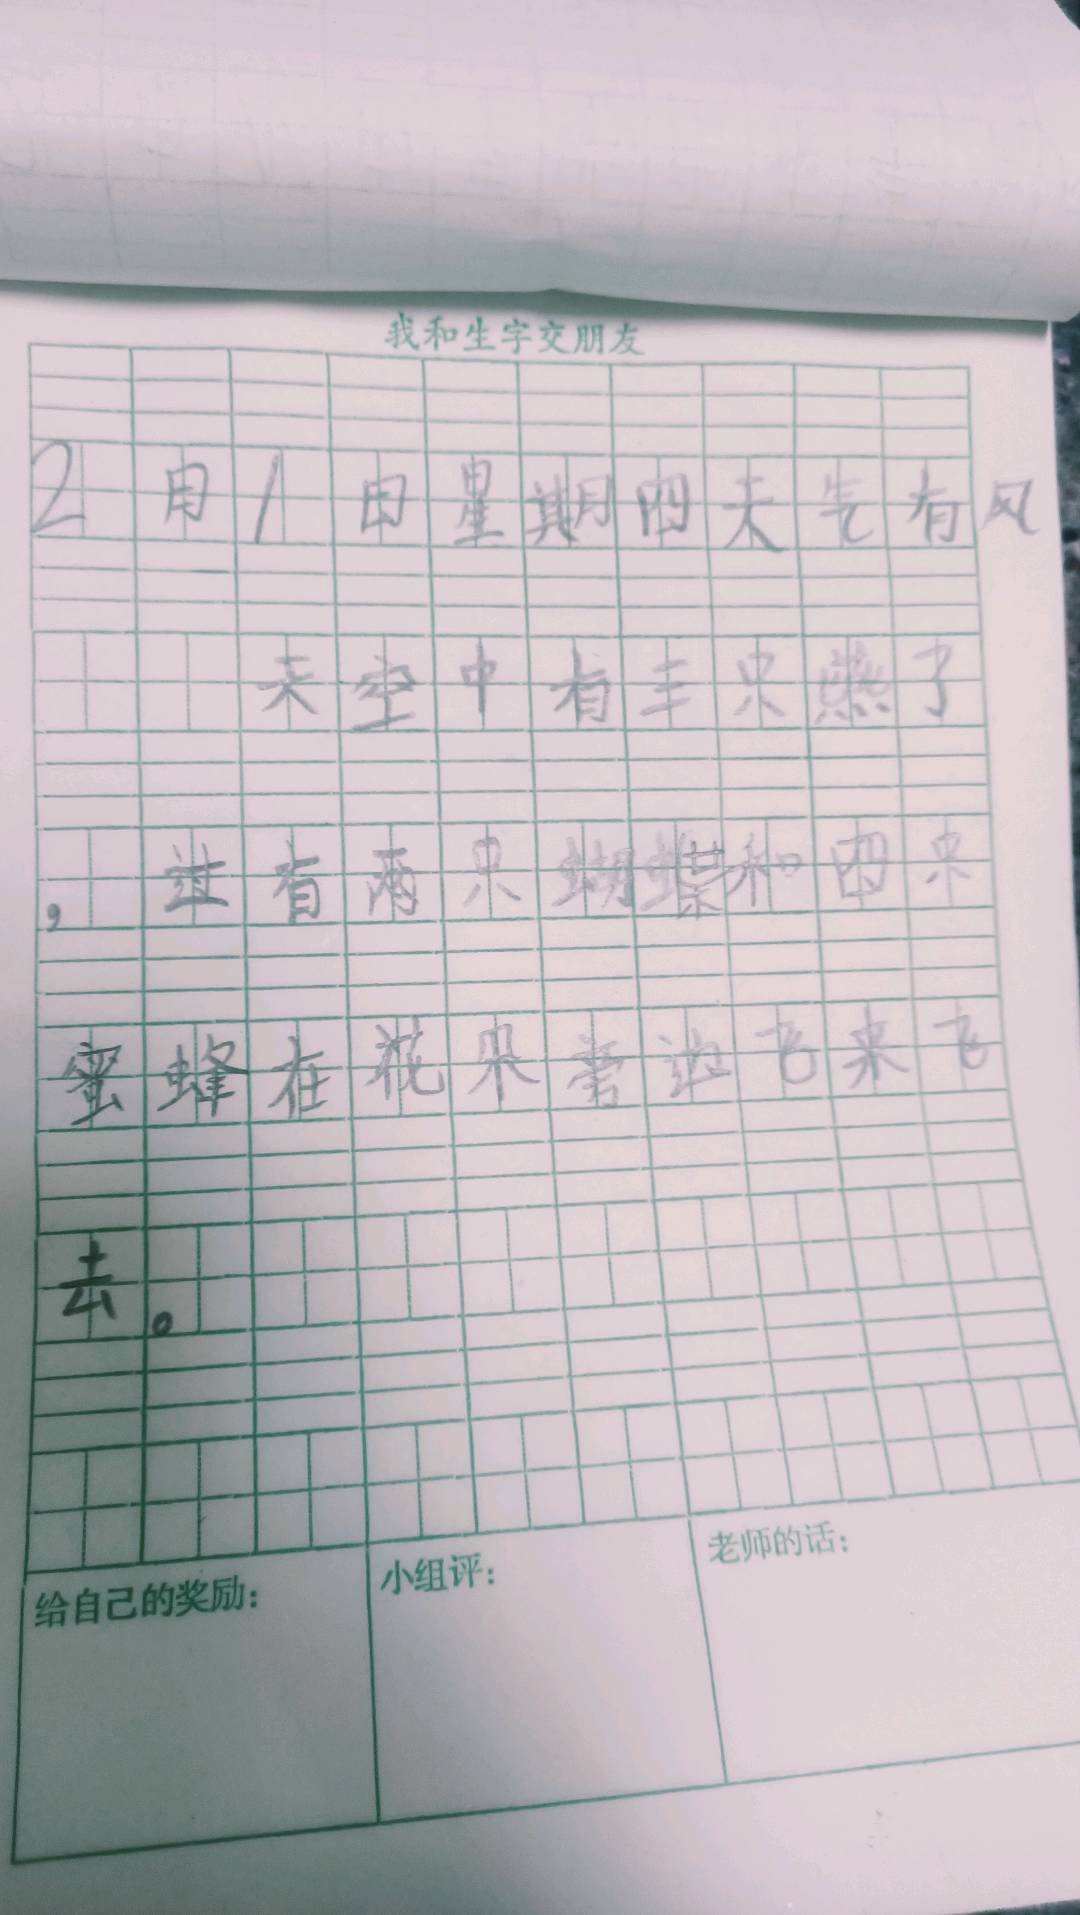 我和生字交朋友
2月1日星期四天气有风
天空中有三只燕了
，还有两只蝴蝶和四只
蜜蜂在花朵旁边飞来飞
去。
给自己的奖励：
小组评：
老师的话：